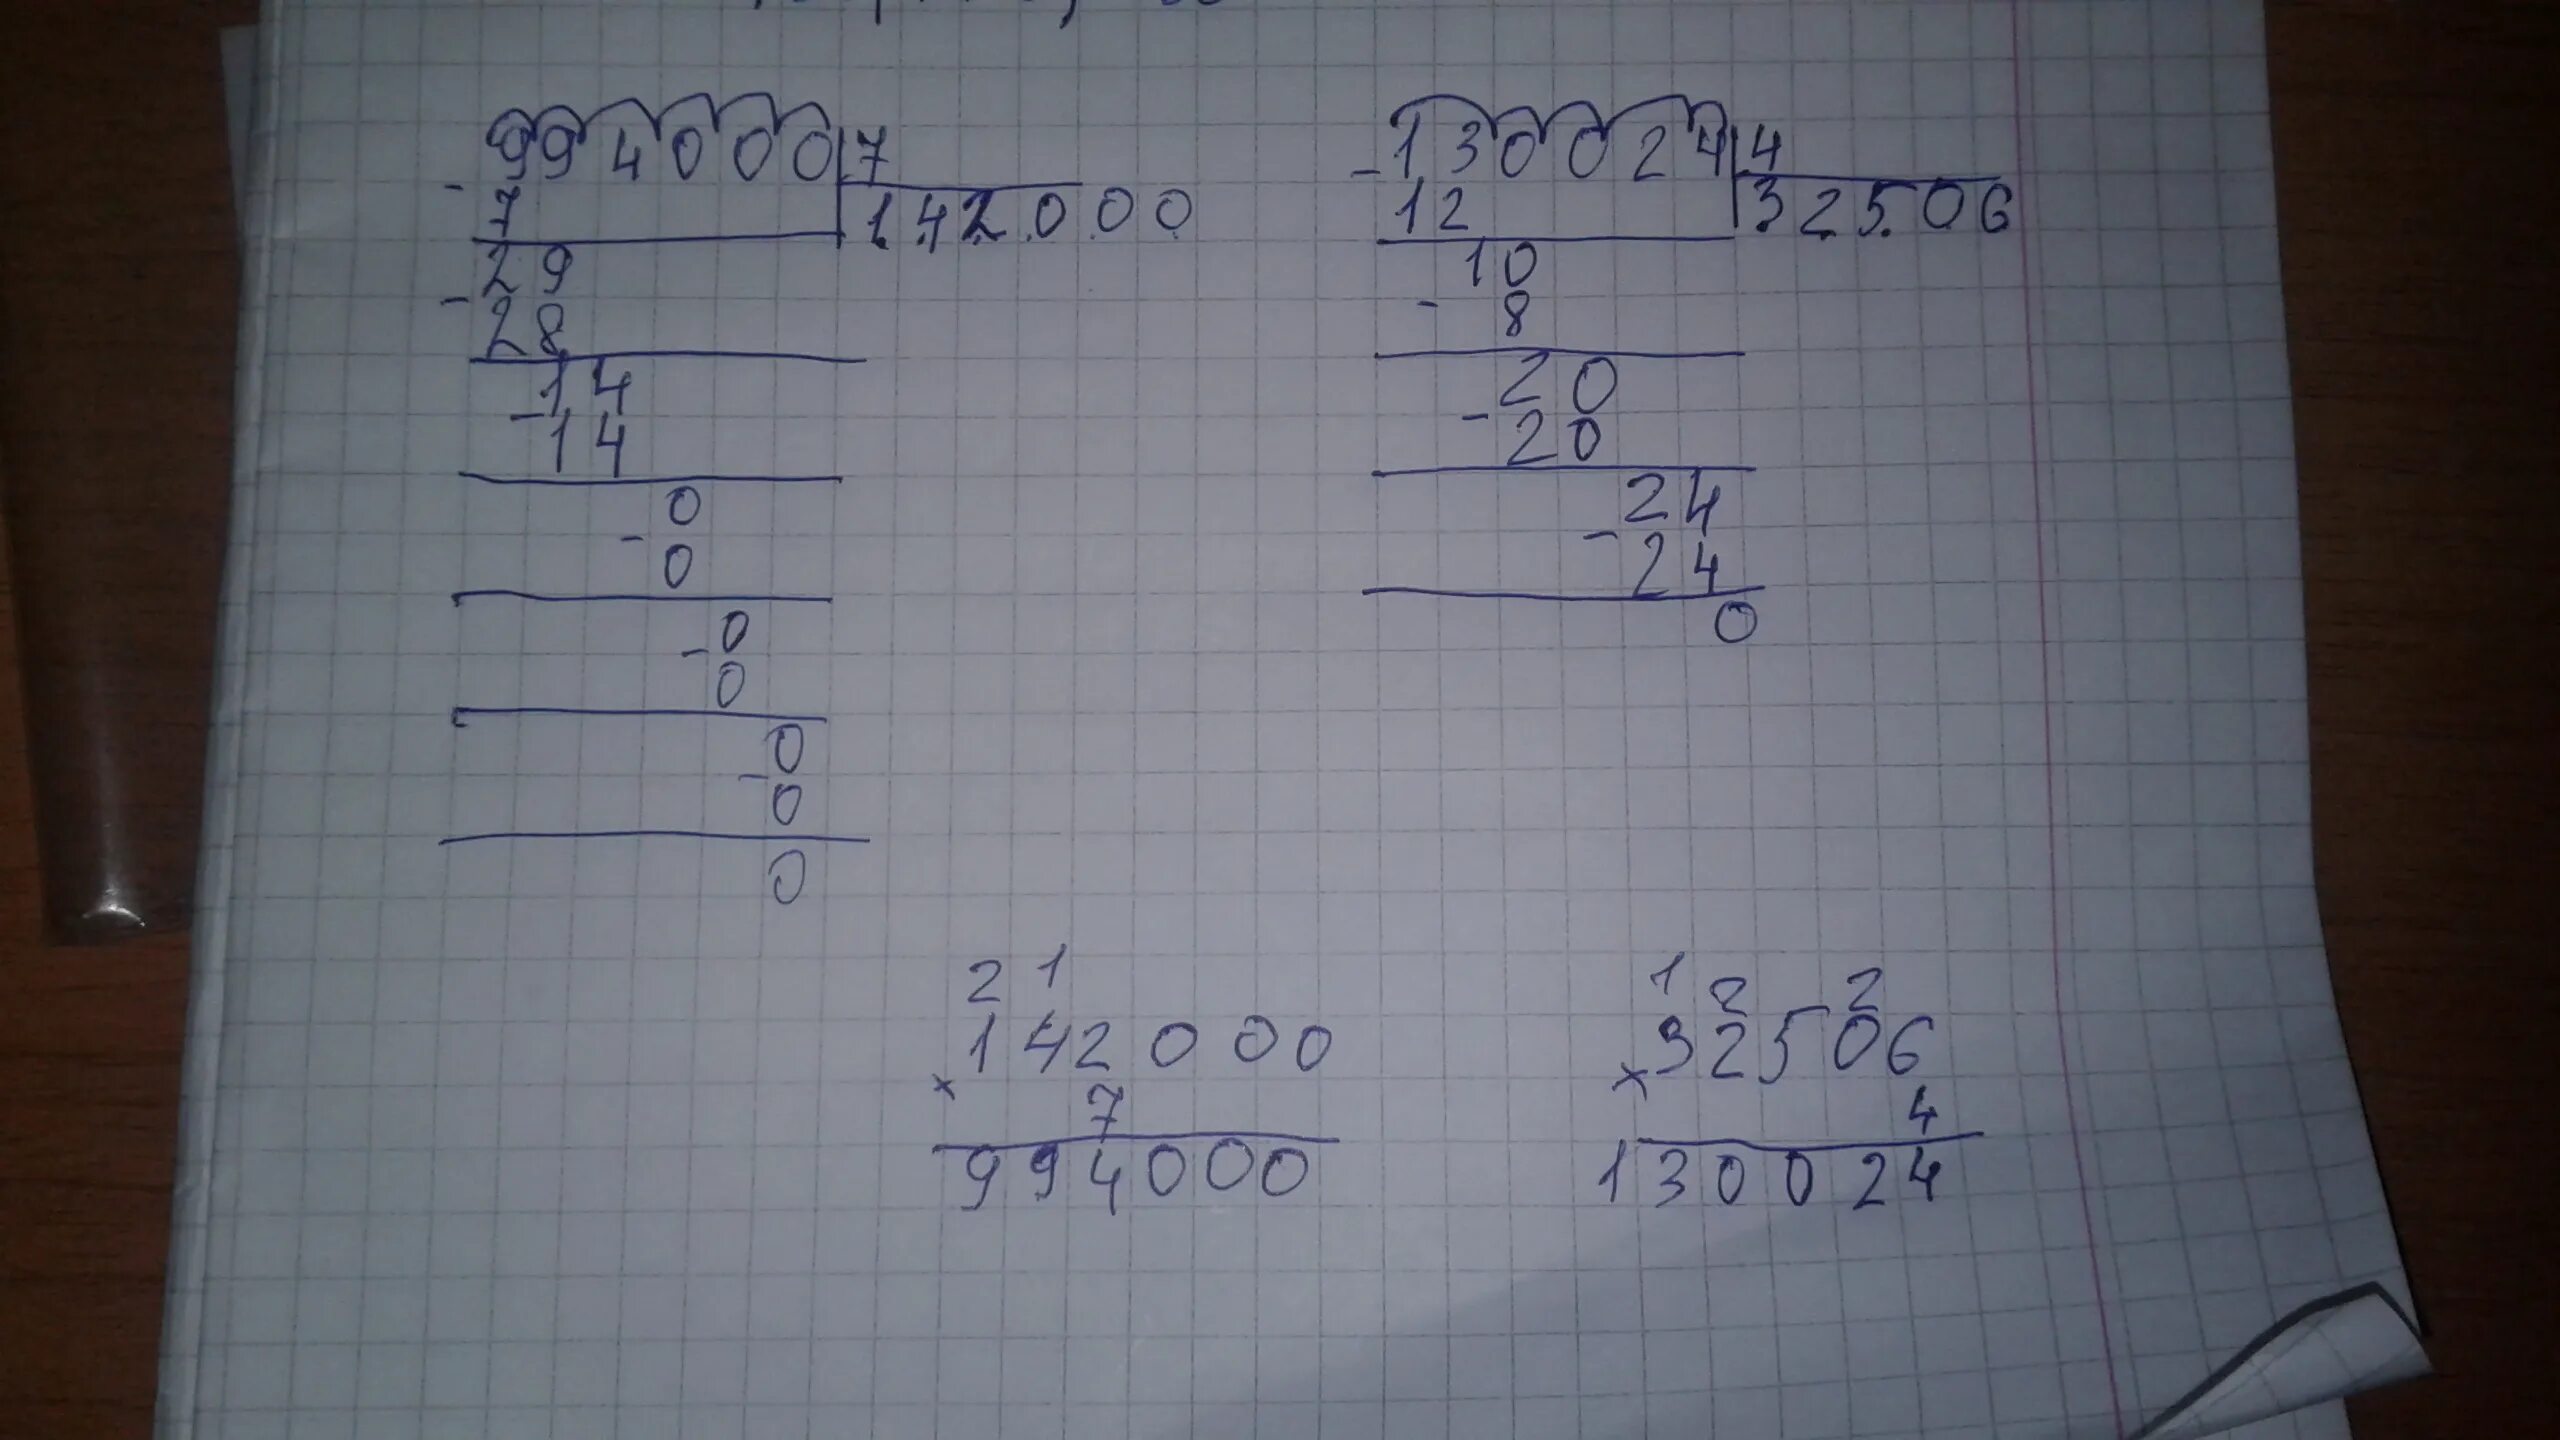 994000 7
- 7
142000
29
- 28
14
- 14
0
- 0
0
- 0
0
- 0
0
- 130024 4
12
32506
10
- 8
20
- 20
24
- 24
0
2 1
142000
× 7
994000
1 2 2
32506
× 4
130024